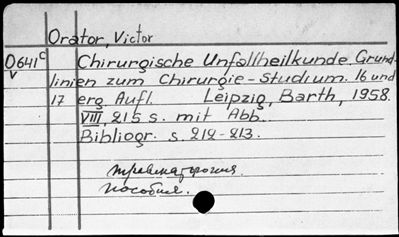 Orator, Victor
O641c Chirurgische Unfallheilkunde. Grund-
v linien zum Chirurgie-Studium. 16 und
17 erg Aufl. Leipzig, Barth, 1958.
VIII, 215 s. mit Abb.
Bibliogr. s. 212-213.
травматология
пособия.